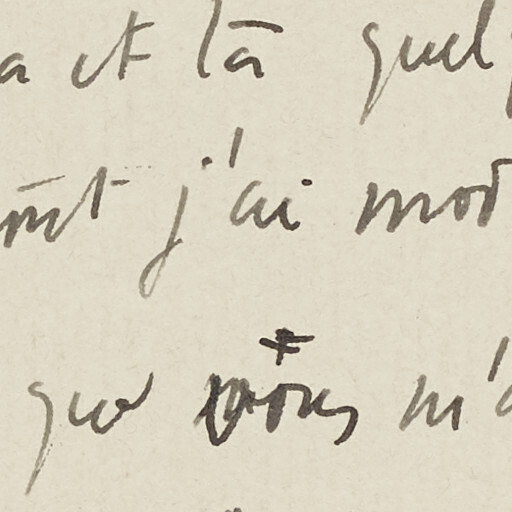 a et là quel
ont j'ai mod
que vous m'a